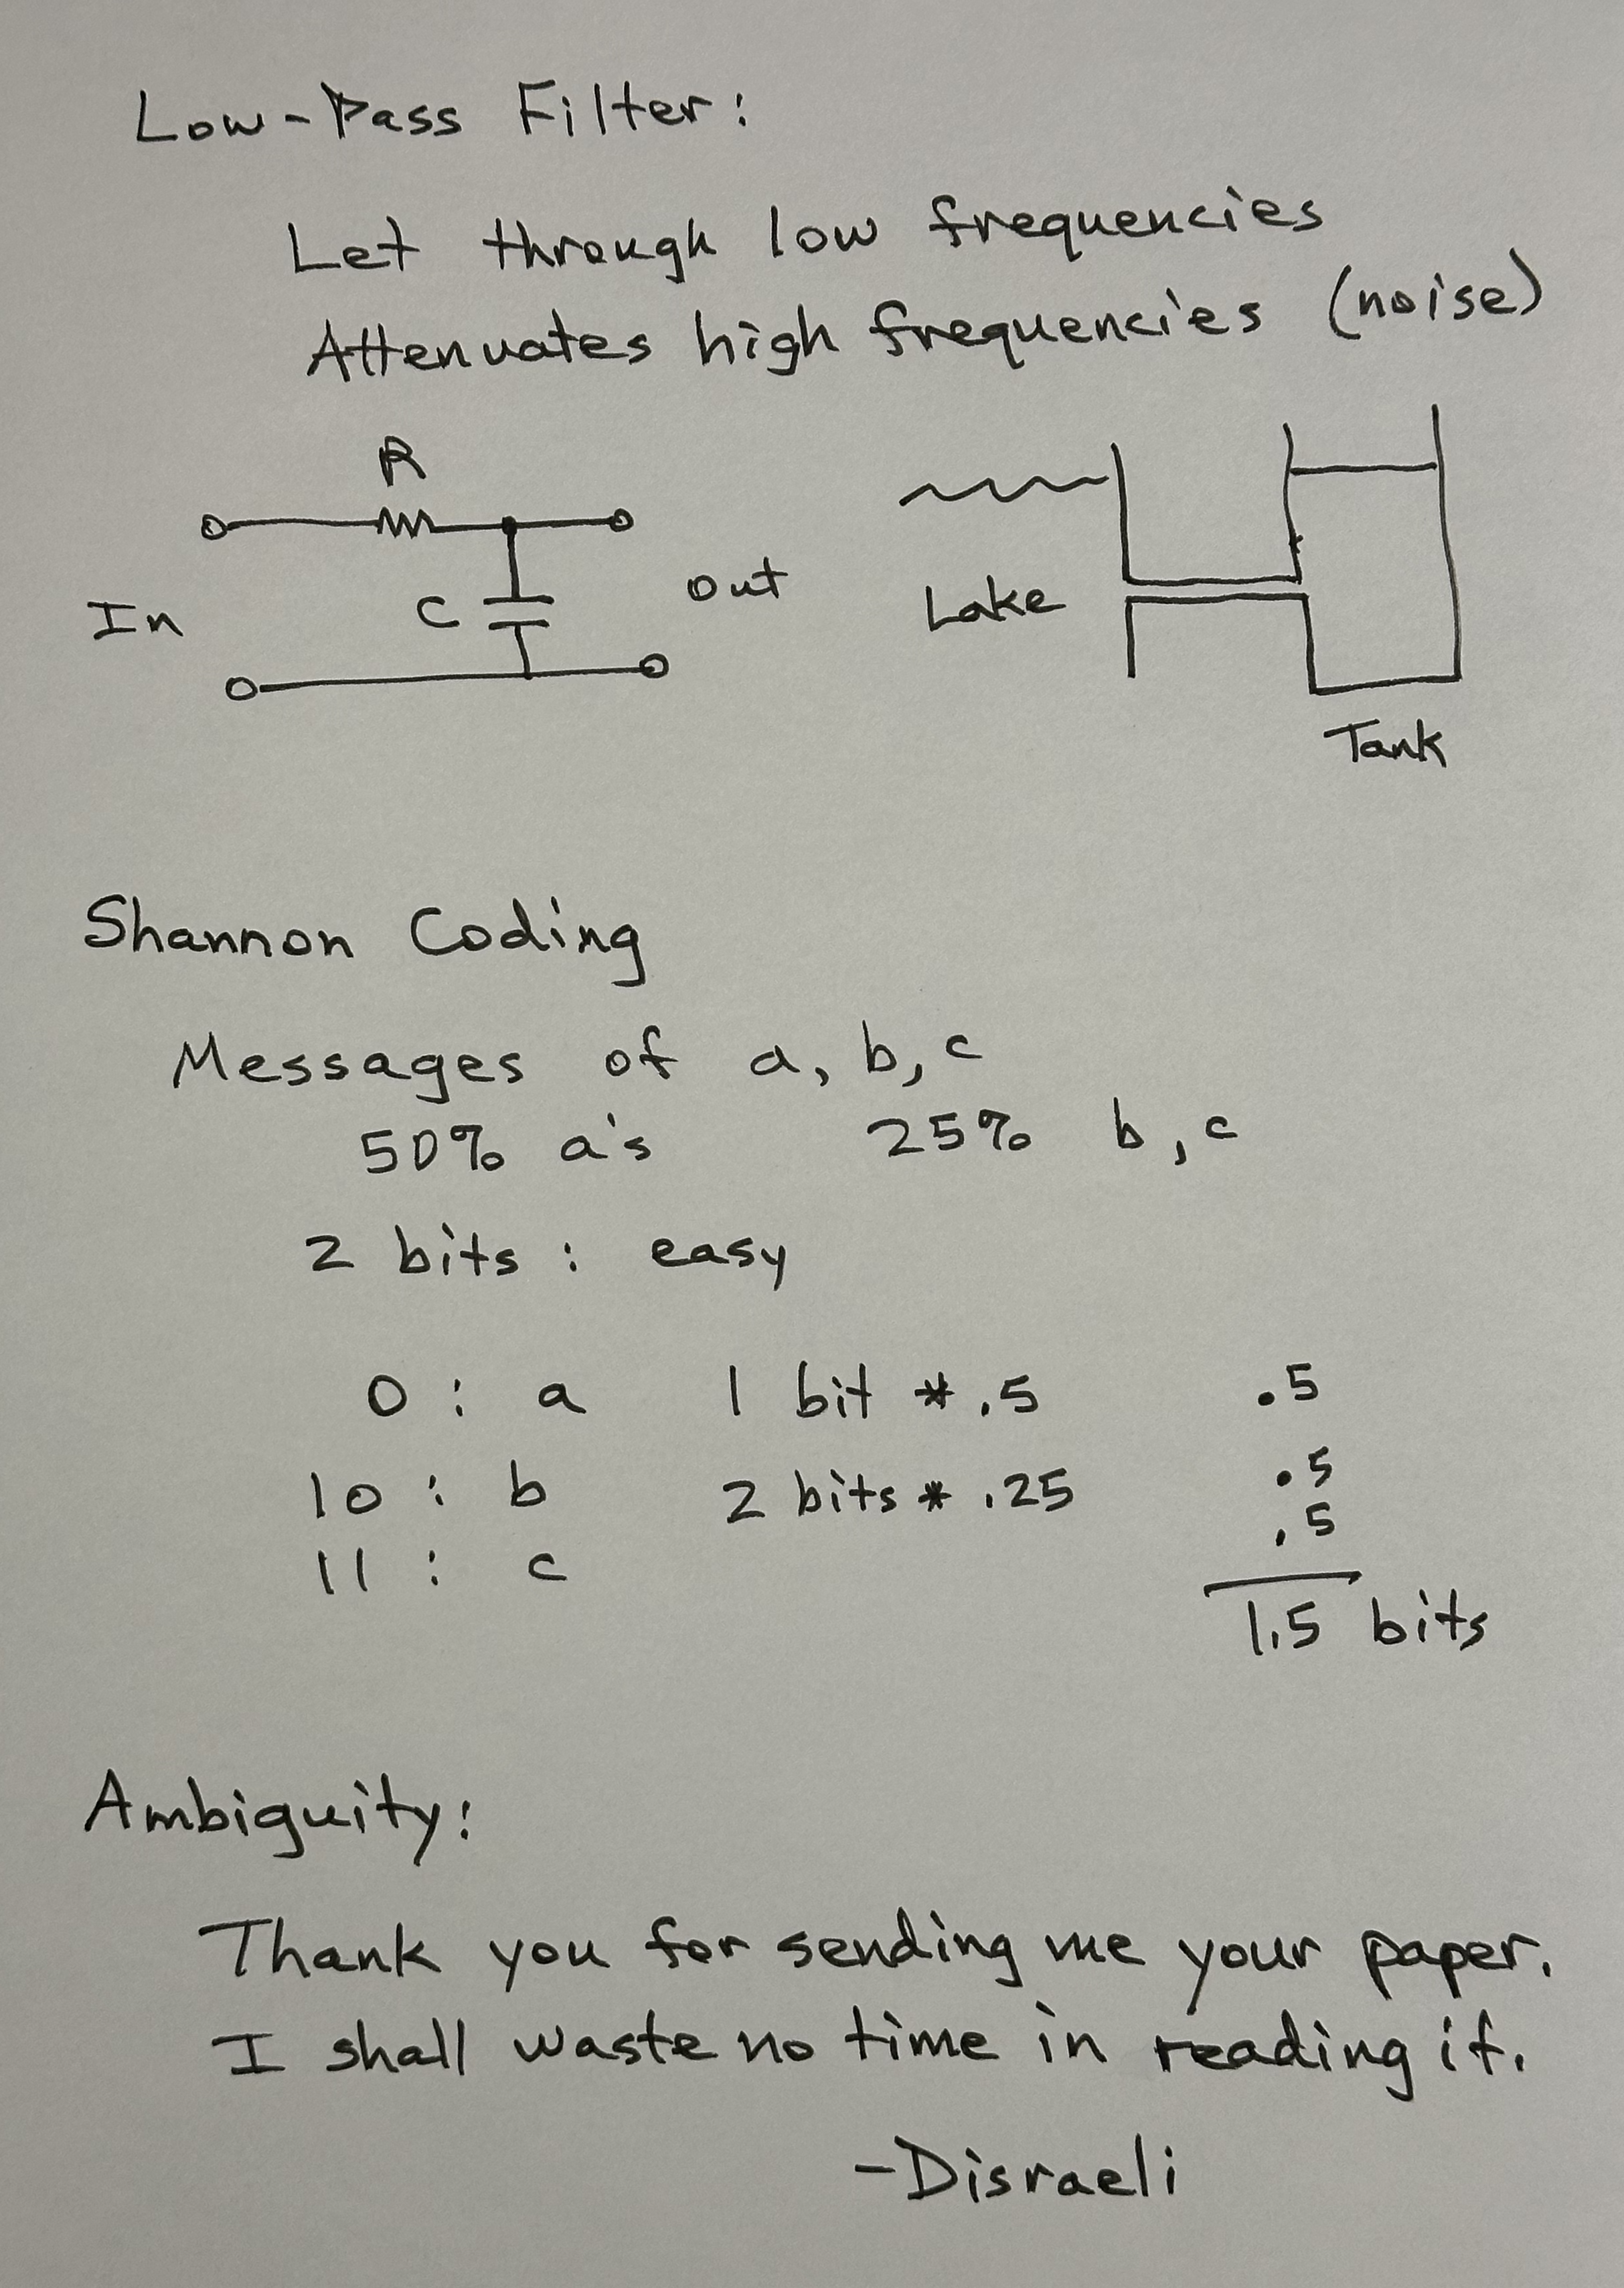 Low-Pass Filter:
Let through low frequencies
Attenuates high frequencies (noise)
R
In
C
out
Lake
Tank
Shannon Coding
Messages of a, b, c
50% a's 25% b, c
2 bits : easy
0 : a 1 bit * .5 .5
10 : b 2 bits * .25 .5
.5
11 : c
1.5 bits
Ambiguity:
Thank you for sending me your paper.
I shall waste no time in reading it.
-Disraeli